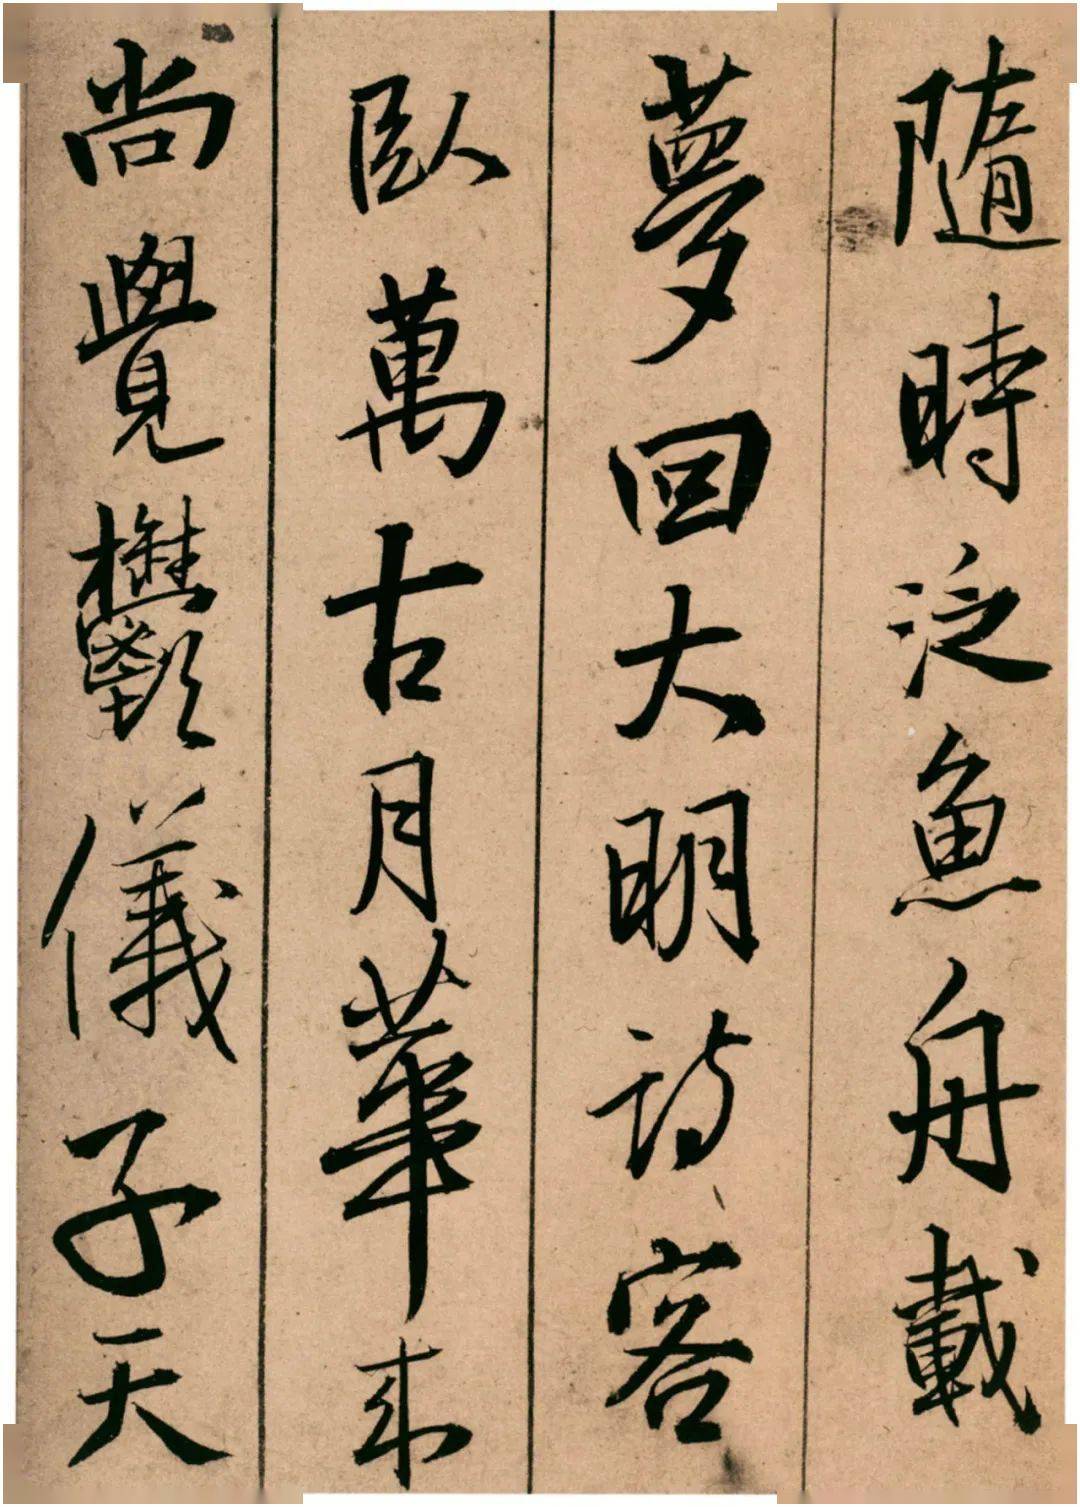 隨時泛魚舟載
夢回大明詩客
臥萬古月華来
尚覺鬱儀子天